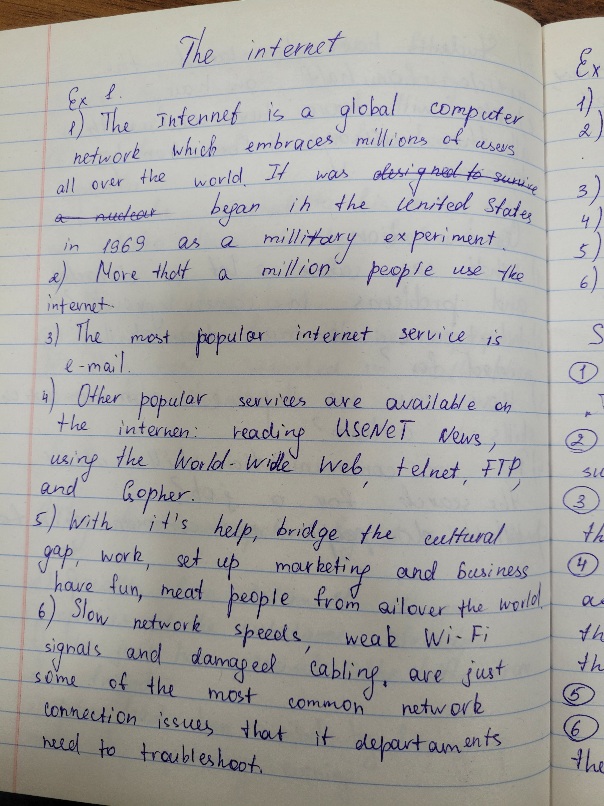 The internet
Ex 1.
1) The Internet is a global computer
network which embraces millions of users
all over the world. It was designed to survive
a nuclear began in the United States
in 1969 as a millitary experiment.
2) More that a million people use the
internet.
3) The most popular internet service is
e-mail.
4) Other popular services are available on
the internen: reading USENET News,
using the World-Wide Web, telnet, FTP,
and Gopher.
5) With it's help, bridge the cultural
gap, work, set up marketing and business
have fun, meat people from allover the world.
6) Slow network speeds, weak Wi-Fi
signals and damaged cabling, are just
some of the most common network
connection issues that it departaments
need to troubleshoot.
Ex
1)
2)
3)
4)
5)
6)
S
1
2
su
3
th
4
as
th
th
5
6
the